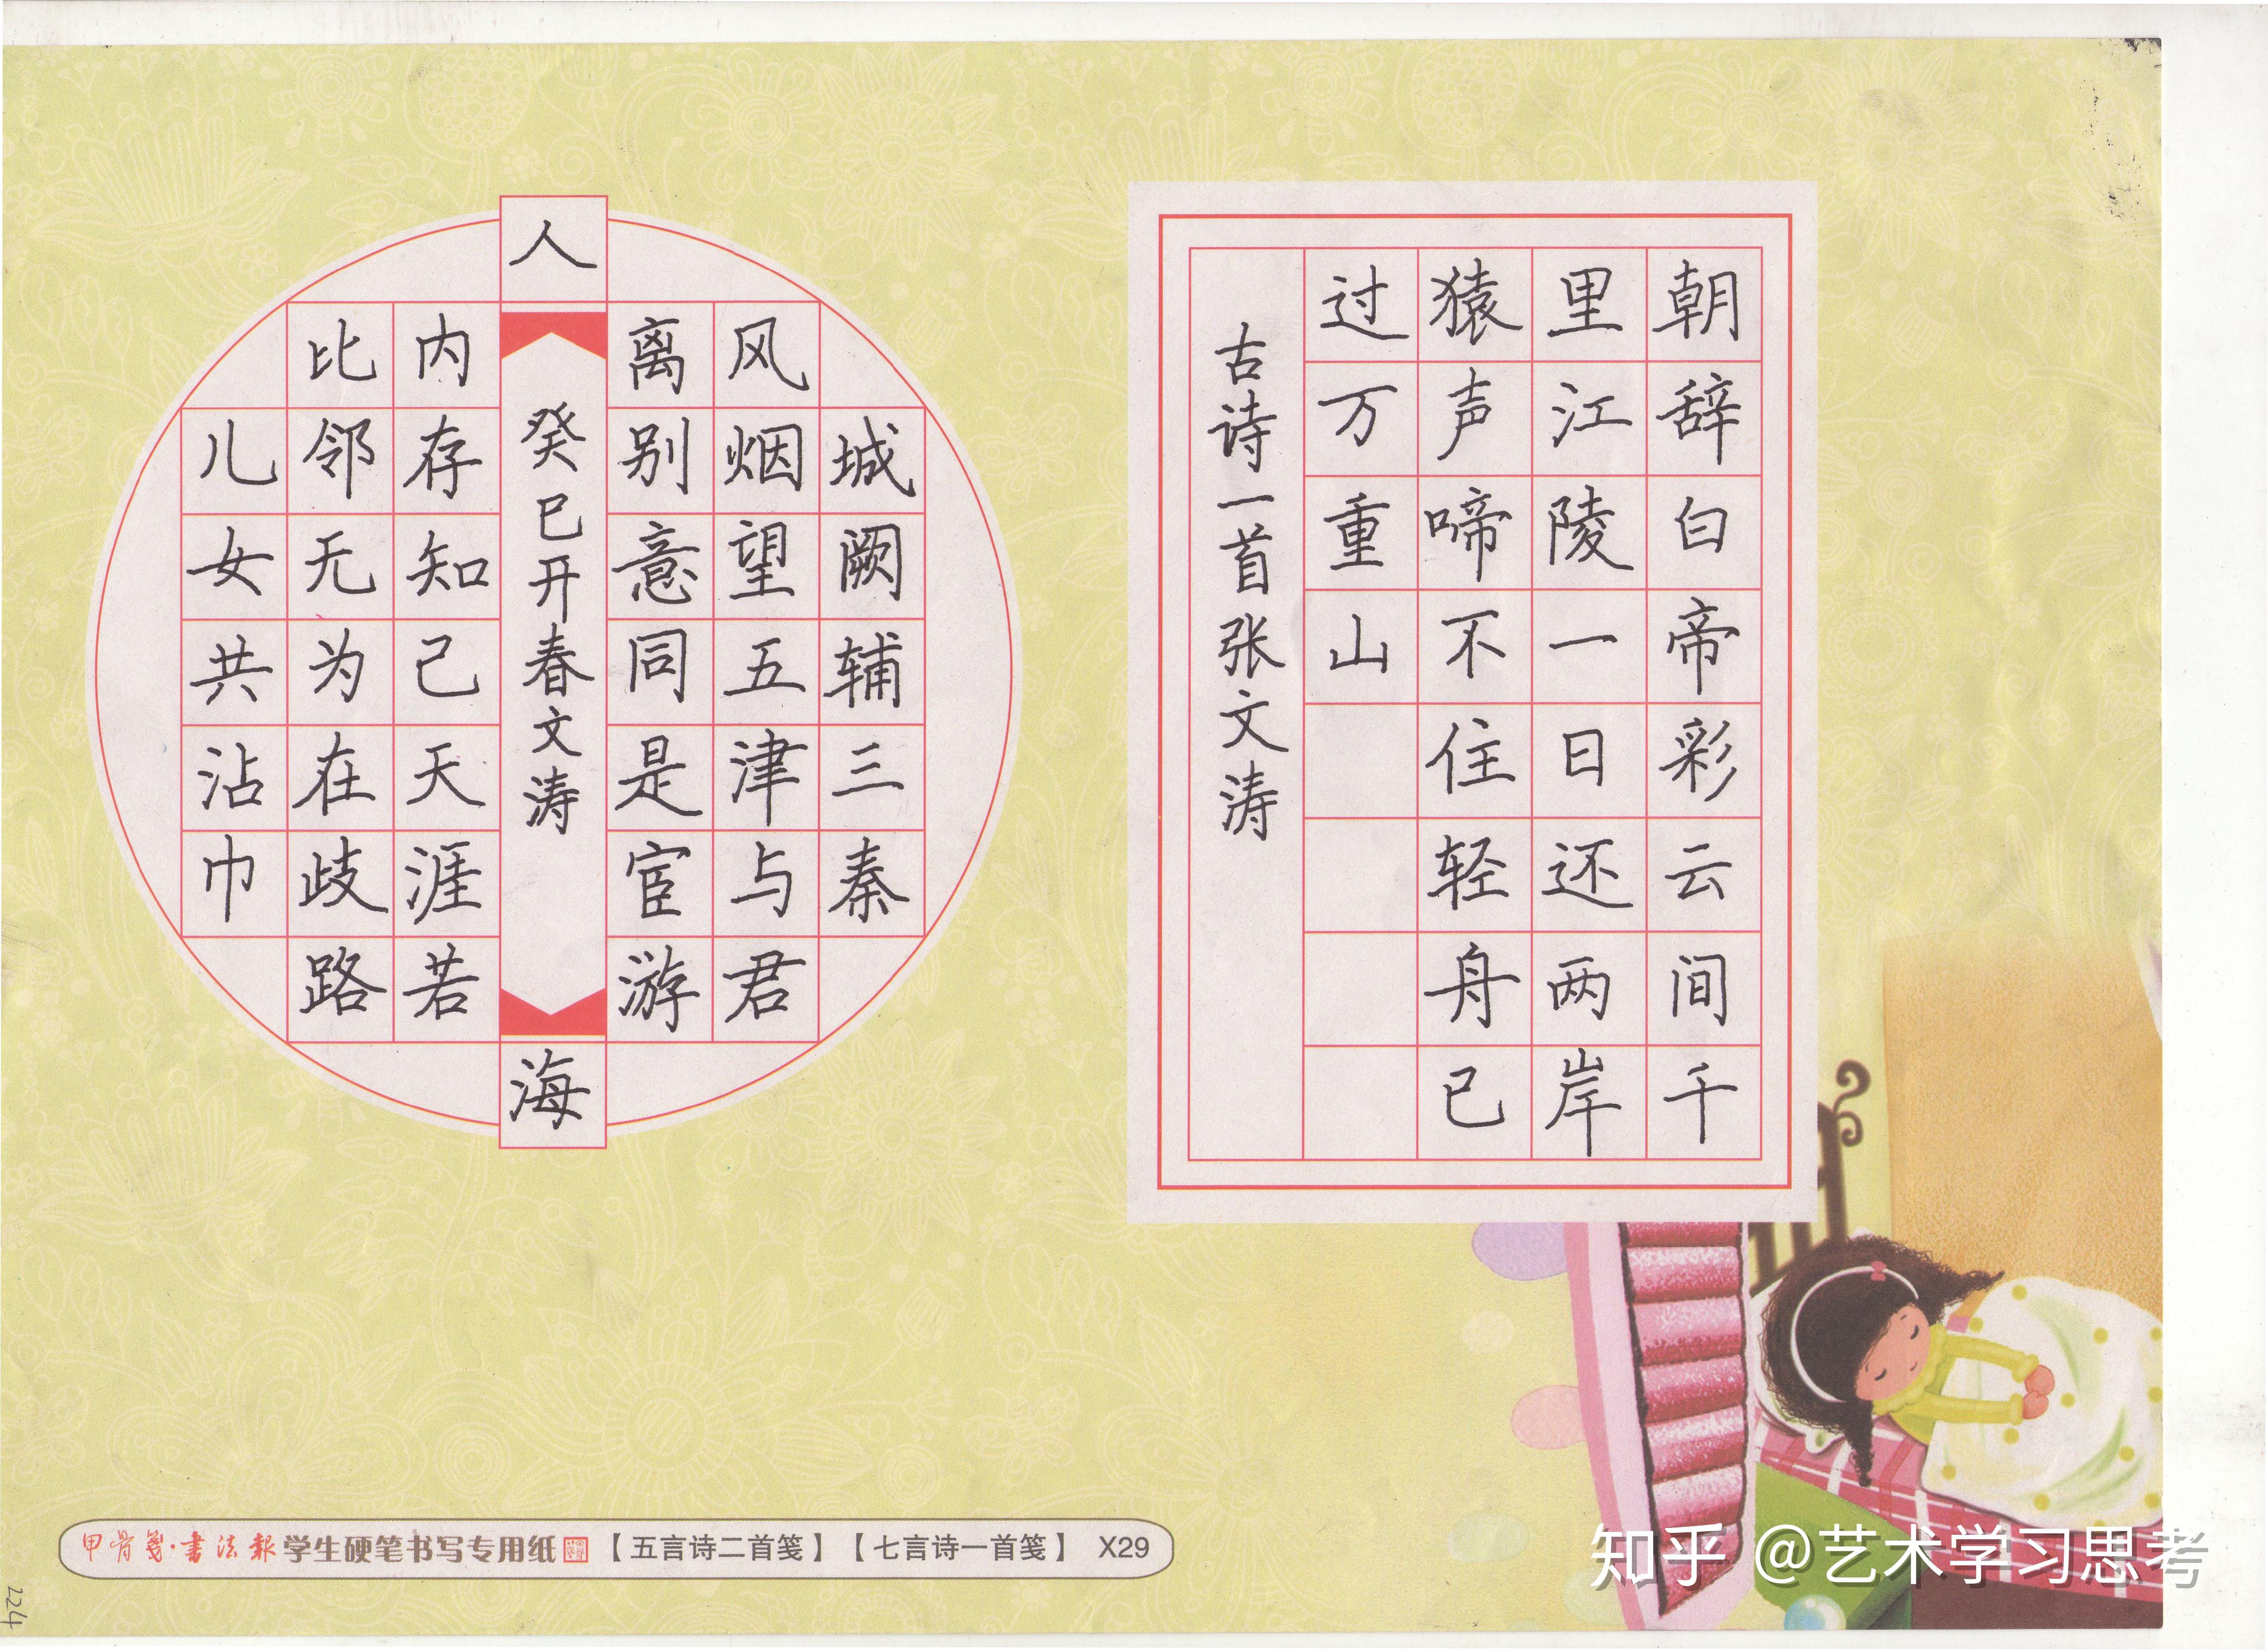 朝辞白帝彩云间千
里江陵一日还两岸
猿声啼不住轻舟已
过万重山
古诗一首张文涛
城阙辅三秦
风烟望五津与君
离别意同是宦游
人
癸巳开春文涛
海
内存知己天涯若
比邻无为在歧路
儿女共沾巾
甲骨笺·书法报学生硬笔书写专用纸【五言诗二首笺】【七言诗一首笺】 X29
知乎 @艺术学习思考
224